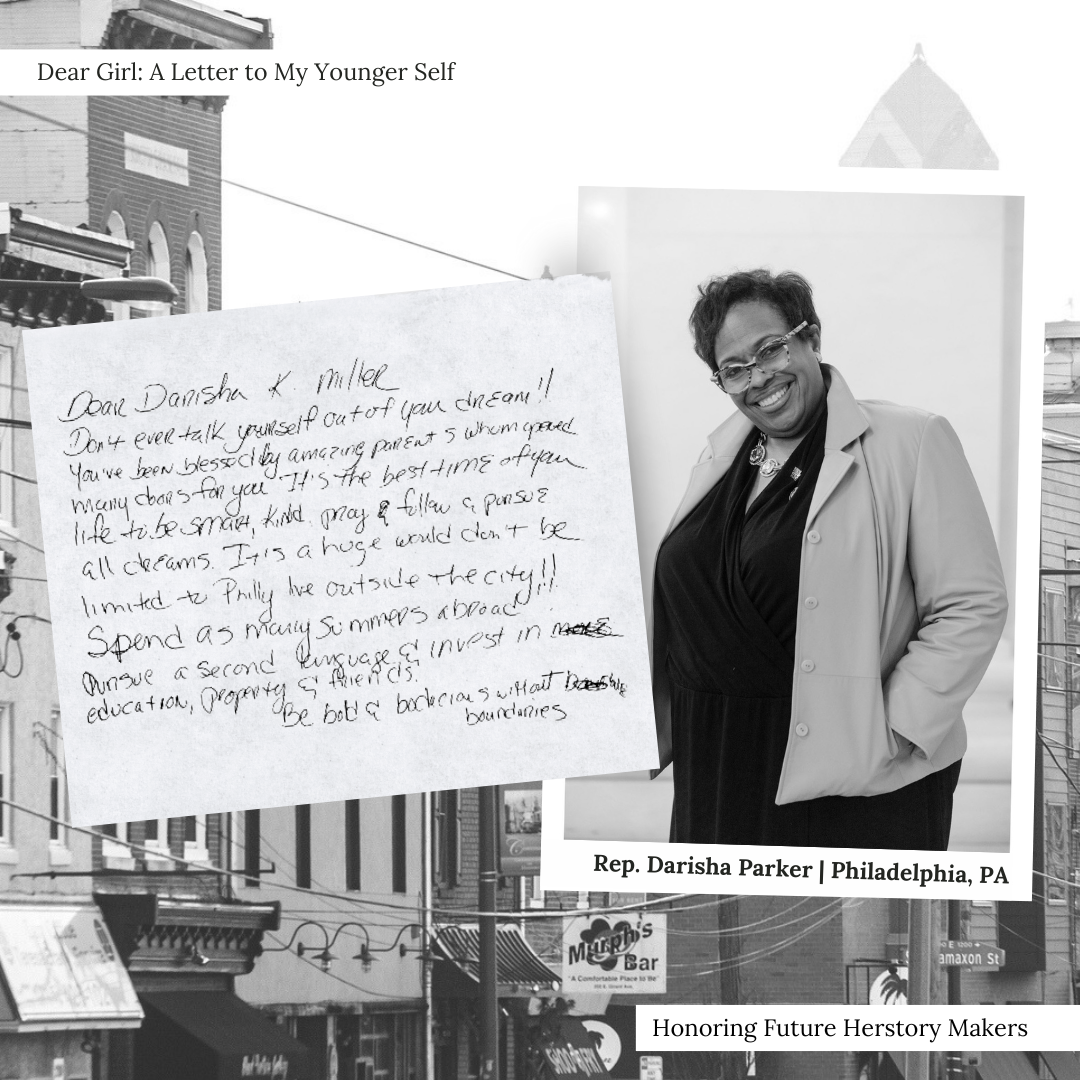 Dear Girl: A Letter to My Younger Self
Dear Darisha K. Miller
Don't ever talk yourself out of you dream!!
You've been blessed by amazing parent s whom opened
many doors for you. It's the best time of you
life to be smart, kind. pray & follow & pursue
all dreams. It is a huge would don't be
limited to Philly live outside the city!!
Spend as many summers abroad!!
Pursue a second language & invest in
education, property & friends.
Be bold & bodacious without
boundaries
Rep. Darisha Parker | Philadelphia, PA
Murph's
Bar
"A Comfortable Place to Be"
E 1200
amaxon St
Honoring Future Herstory Makers